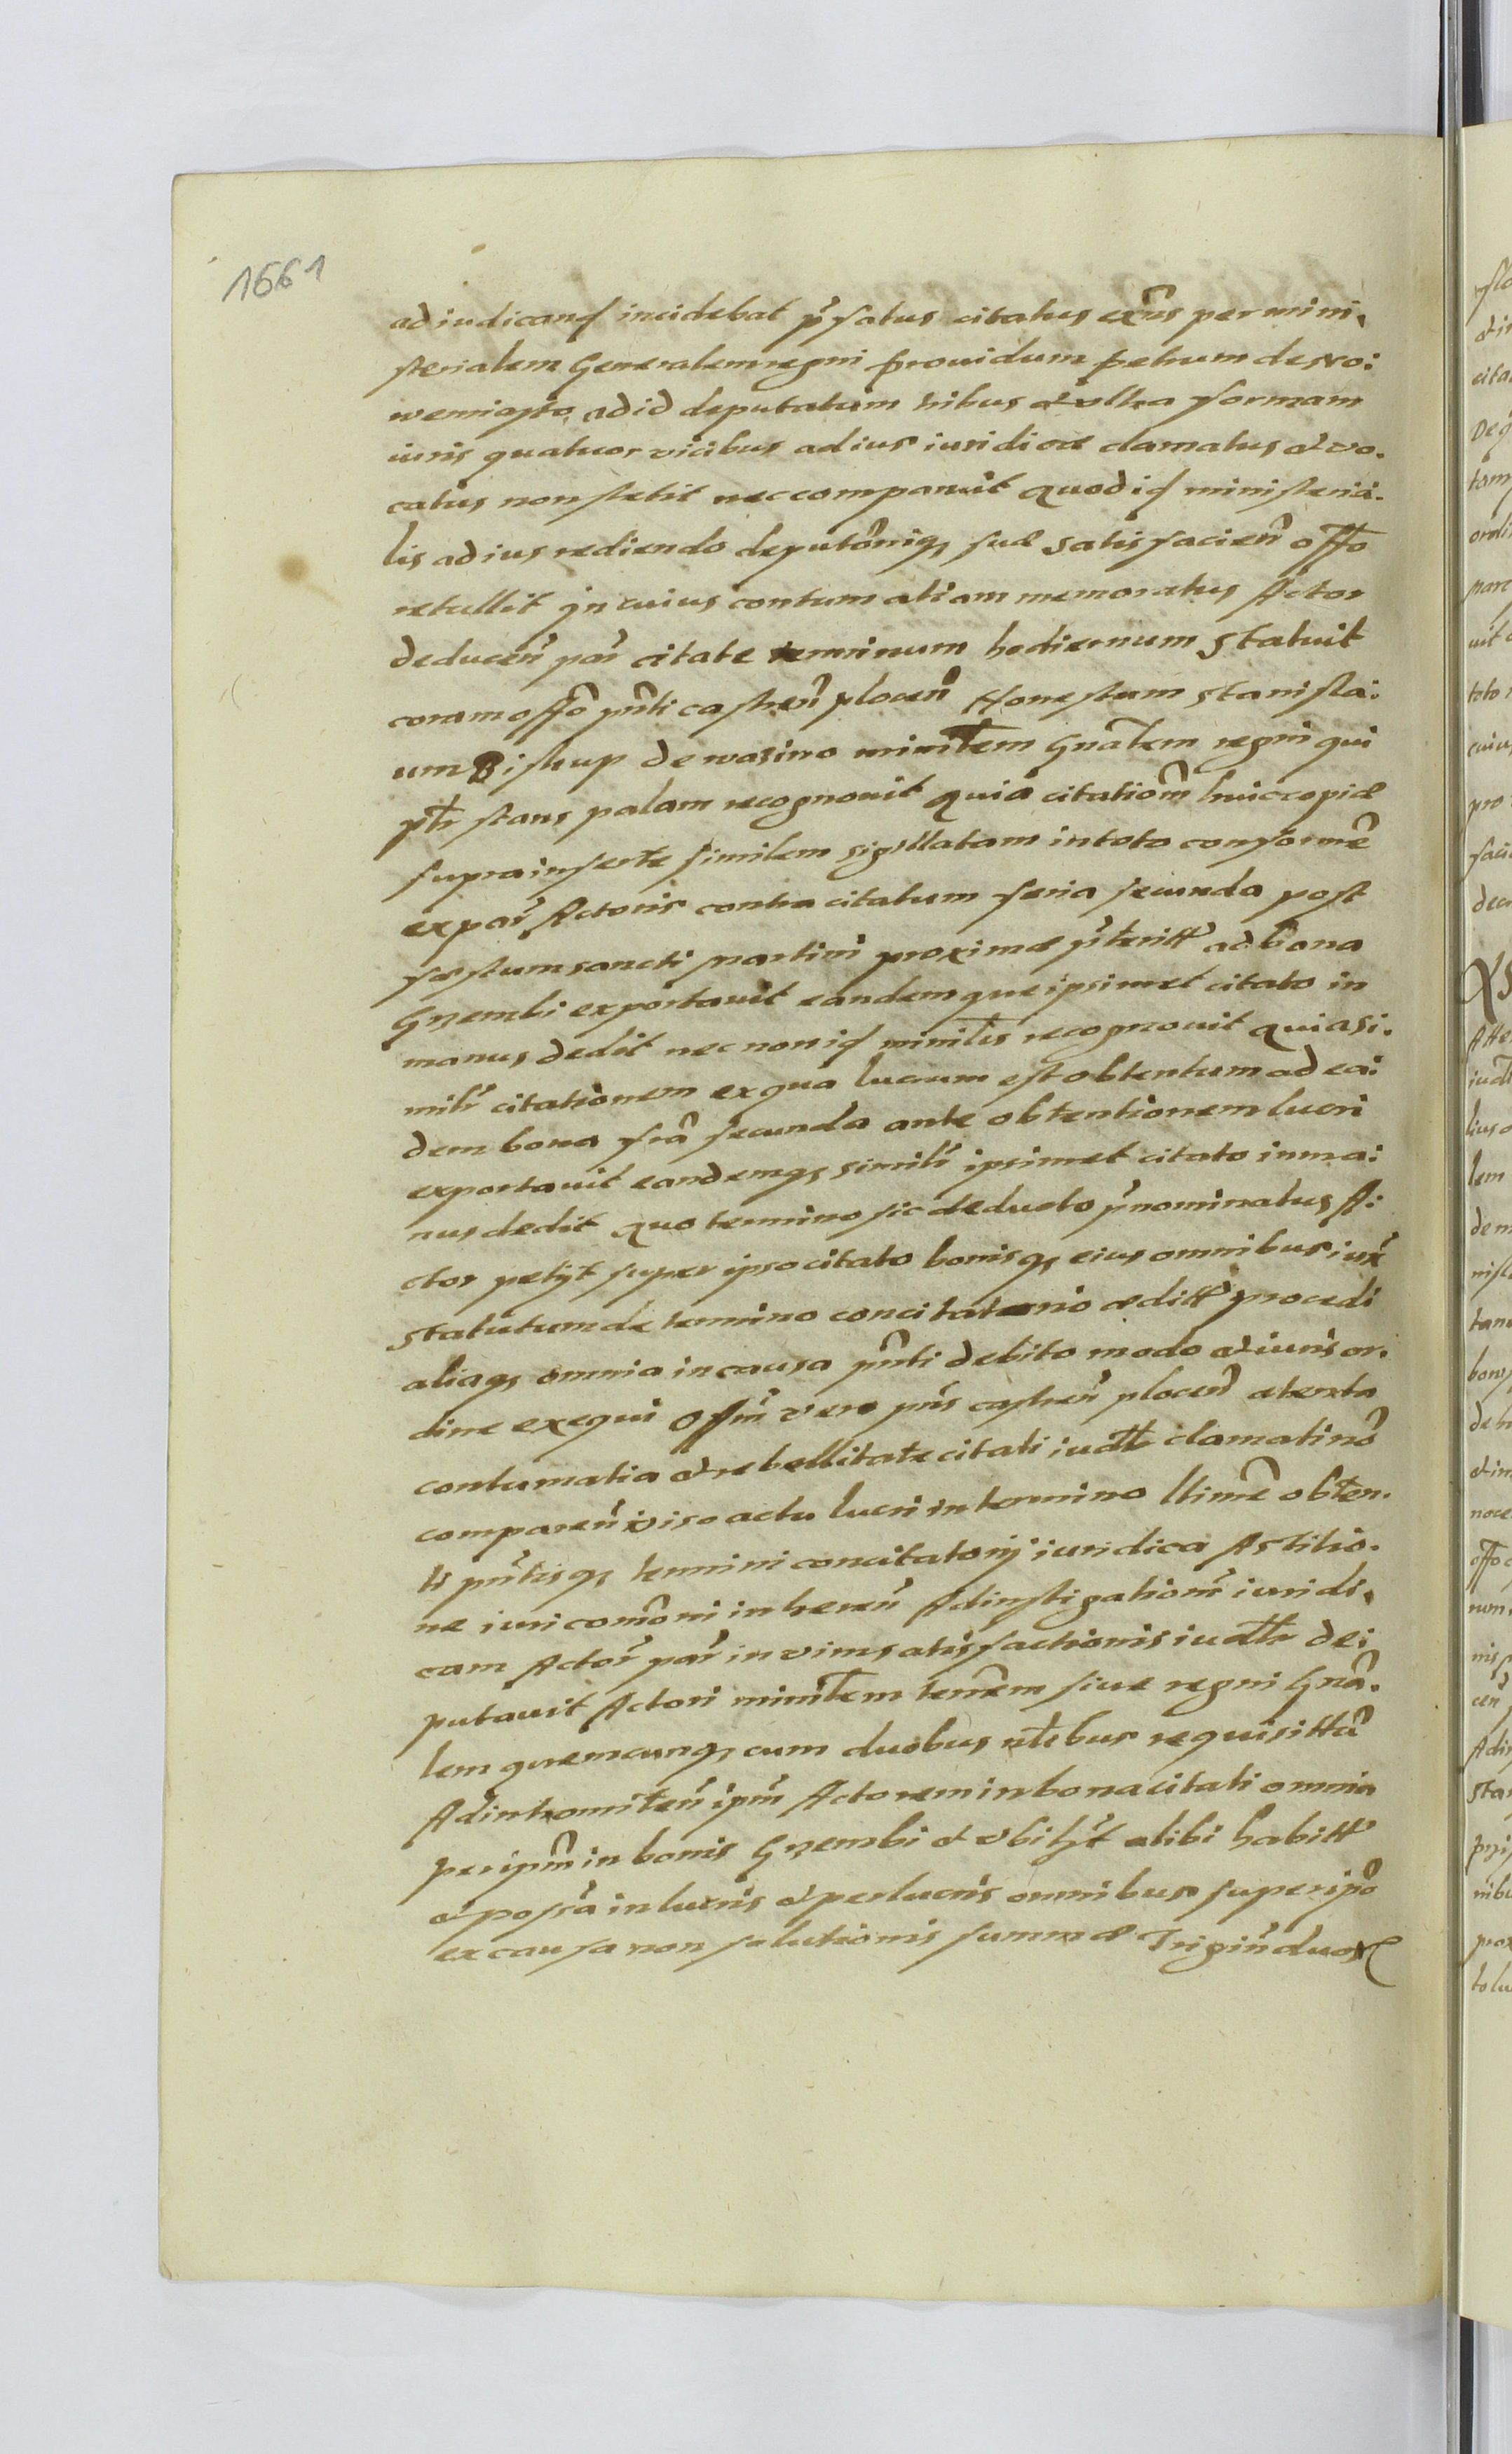 1661
ad iudicand incidebat pfatus citatus exns per mini,
sterialem Generalem regni prouidum petrum de wo:
wemiasto ad id deputatum tribus et ultra formam
iuris quatuor vicibus ad ius iuridice clamatus et vo.
catus non stetit nec comparuit quod id ministeria.
lis ad ius rediendo deputoniq suæ satisfacien offo
retullit in cuius contumatiam memoratus Actor
deducen par citate terminum hodiernum statuit
coram offo pnti castren plocen Honestum stanisla:
um Biskup de wasino minlem Gnalem regni qui
pntr stans palam recognouit quia citationm huic copiæ
supra inserte similem sigillatam in toto conforme
ex par Actoris contra citatum feria secunda post
festum sancti martini proximæ pteritt ad bona
Gzembi exportauit eandemque ipsimet citato in
manus dedit nec non id minlis recognouit quia si.
milr citationem ex qua lucrum est obtentum ad ea:
dem bona fria secunda ante obtentionem lucri
exportauit eandemq similr ipsimet citato in ma:
nus dedit quo termino sic deducto pnominatus A:
ctor petyt super ipso citato bonisq eius omnibus iux
statutum de termino concitatorio æditt procedi
aliaq omnia in causa pnti debito modo et iuris or.
dine exequi Offm vero pns castren plocen atenta
contumatia et rebellitate citati iudtr clamati no
comparen viso actu lucri in termino llime obten.
ti pntisq termini concitatorij iuridica Astitio.
ne iuri comoni inheren Ad instigationr iuridi,
cam Actor par in vim satisfactionis iudtr de:
putauit Actori minlem terrem siue regni Gna.
lem quemcunq cum duobus nlibus requisittu
Ad intromitten ipm Actorem in bona citati omnia
per ipm in bonis Gzembi et vbi het alibi habitt
et possa in lucris et perlucris omnibus super ipo
ex causa non solutionis summæ Trigin duor